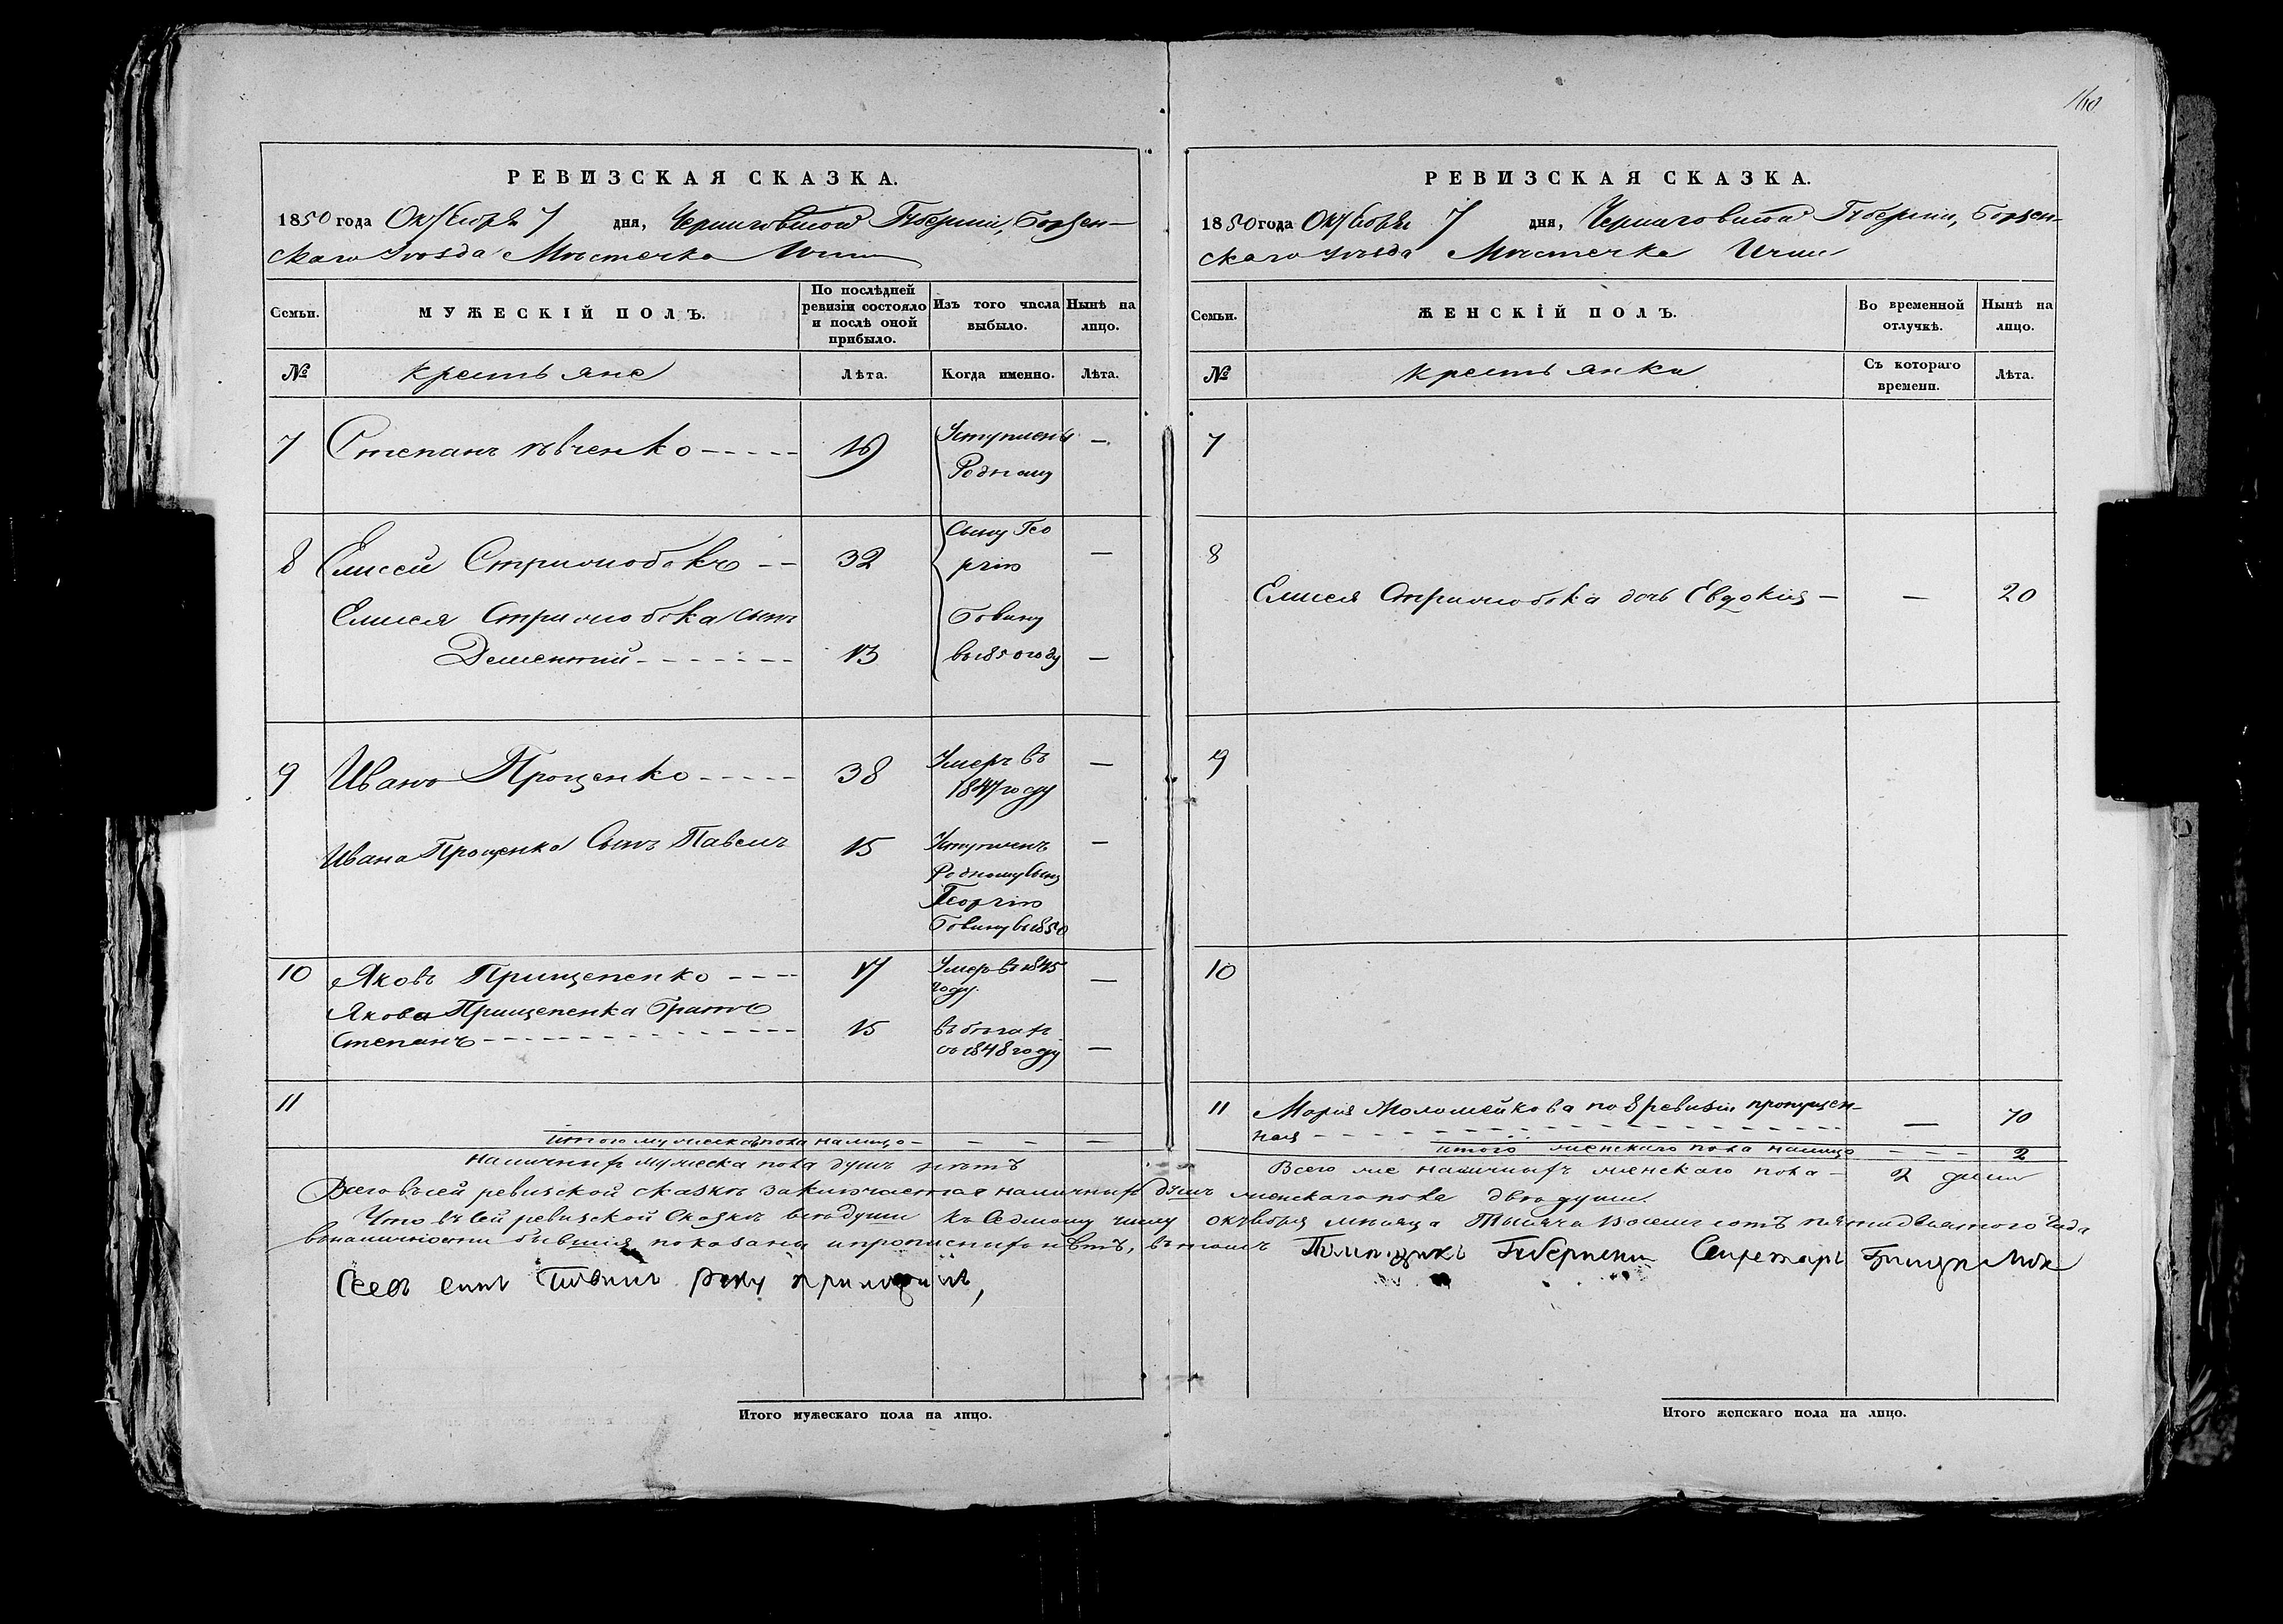 160
РЕВИЗСКАЯ СКАЗКА.
1850 года Октября 7 дня, Черниговской Губернии, Борзен-
скаго Уѣзда Мѣстечка Ични
Семьи. МУЖЕСКІЙ ПОЛЪ. По послѣдней ревизіи состояло и послѣ оной прибыло. Изъ того числа выбыло. Нынѣ на лицо.
№ крестьяне Лѣта. Когда именно. Лѣта.
7 Степанъ 19 Уступлены —
Родному
8 Елисей Стримобокъ 32 Сыну Гео —
ргію
Елисея Стримобока сынъ
Дементий 13 въ 1850 году —
9 Иванъ Проценко 38 Умеръ въ —
1847 году
Ивана Проценка Сынъ Павелъ 15 Уступленъ —
Родному Сыну
Георгію
в 1850
10 Яковъ Прищепенко 17 Умеръ въ 1845 —
году.
Якова Прищепенка Братъ
Степанъ 15 въ бѣгахъ
съ 1848 году —
11
итого мужеска пола налицо — — — —
наличныхъ мужеска пола душъ нѣтъ
РЕВИЗСКАЯ СКАЗКА.
1850 года Октября 7 дня, Черниговской Губернии, Борзен-
скаго уѣзда Мѣстечка Ични
Семьи. ЖЕНСКІЙ ПОЛЪ. Во временной отлучкѣ. Нынѣ на лицо.
№ крестьянки Съ котораго времени. Лѣта.
7
8
Елисея Стримобока дочь Евдокия — — 20
9
10
11 Мария Моломейкова по 8 ревизіи пропущен-
ная — 70
итого женскаго пола налицо — — — 2
Всего же наличныхъ женскаго пола — 2 души
Всего въ сей ревизской сказкѣ заключается наличныхъ душъ женскаго пола двѣ души.
Что въ сей ревизской Сказкѣ всѣ души къ Седмому числу октября мѣсяца Тысяча восемьсотъ пятидесятаго года
въ наличности бывшия показаны и прописныхъ нѣтъ, въ томъ Помѣщикъ Губернский Секретарь
руку приложилъ,
Итого мужескаго пола на лицо.
Итого женскаго пола на лицо.